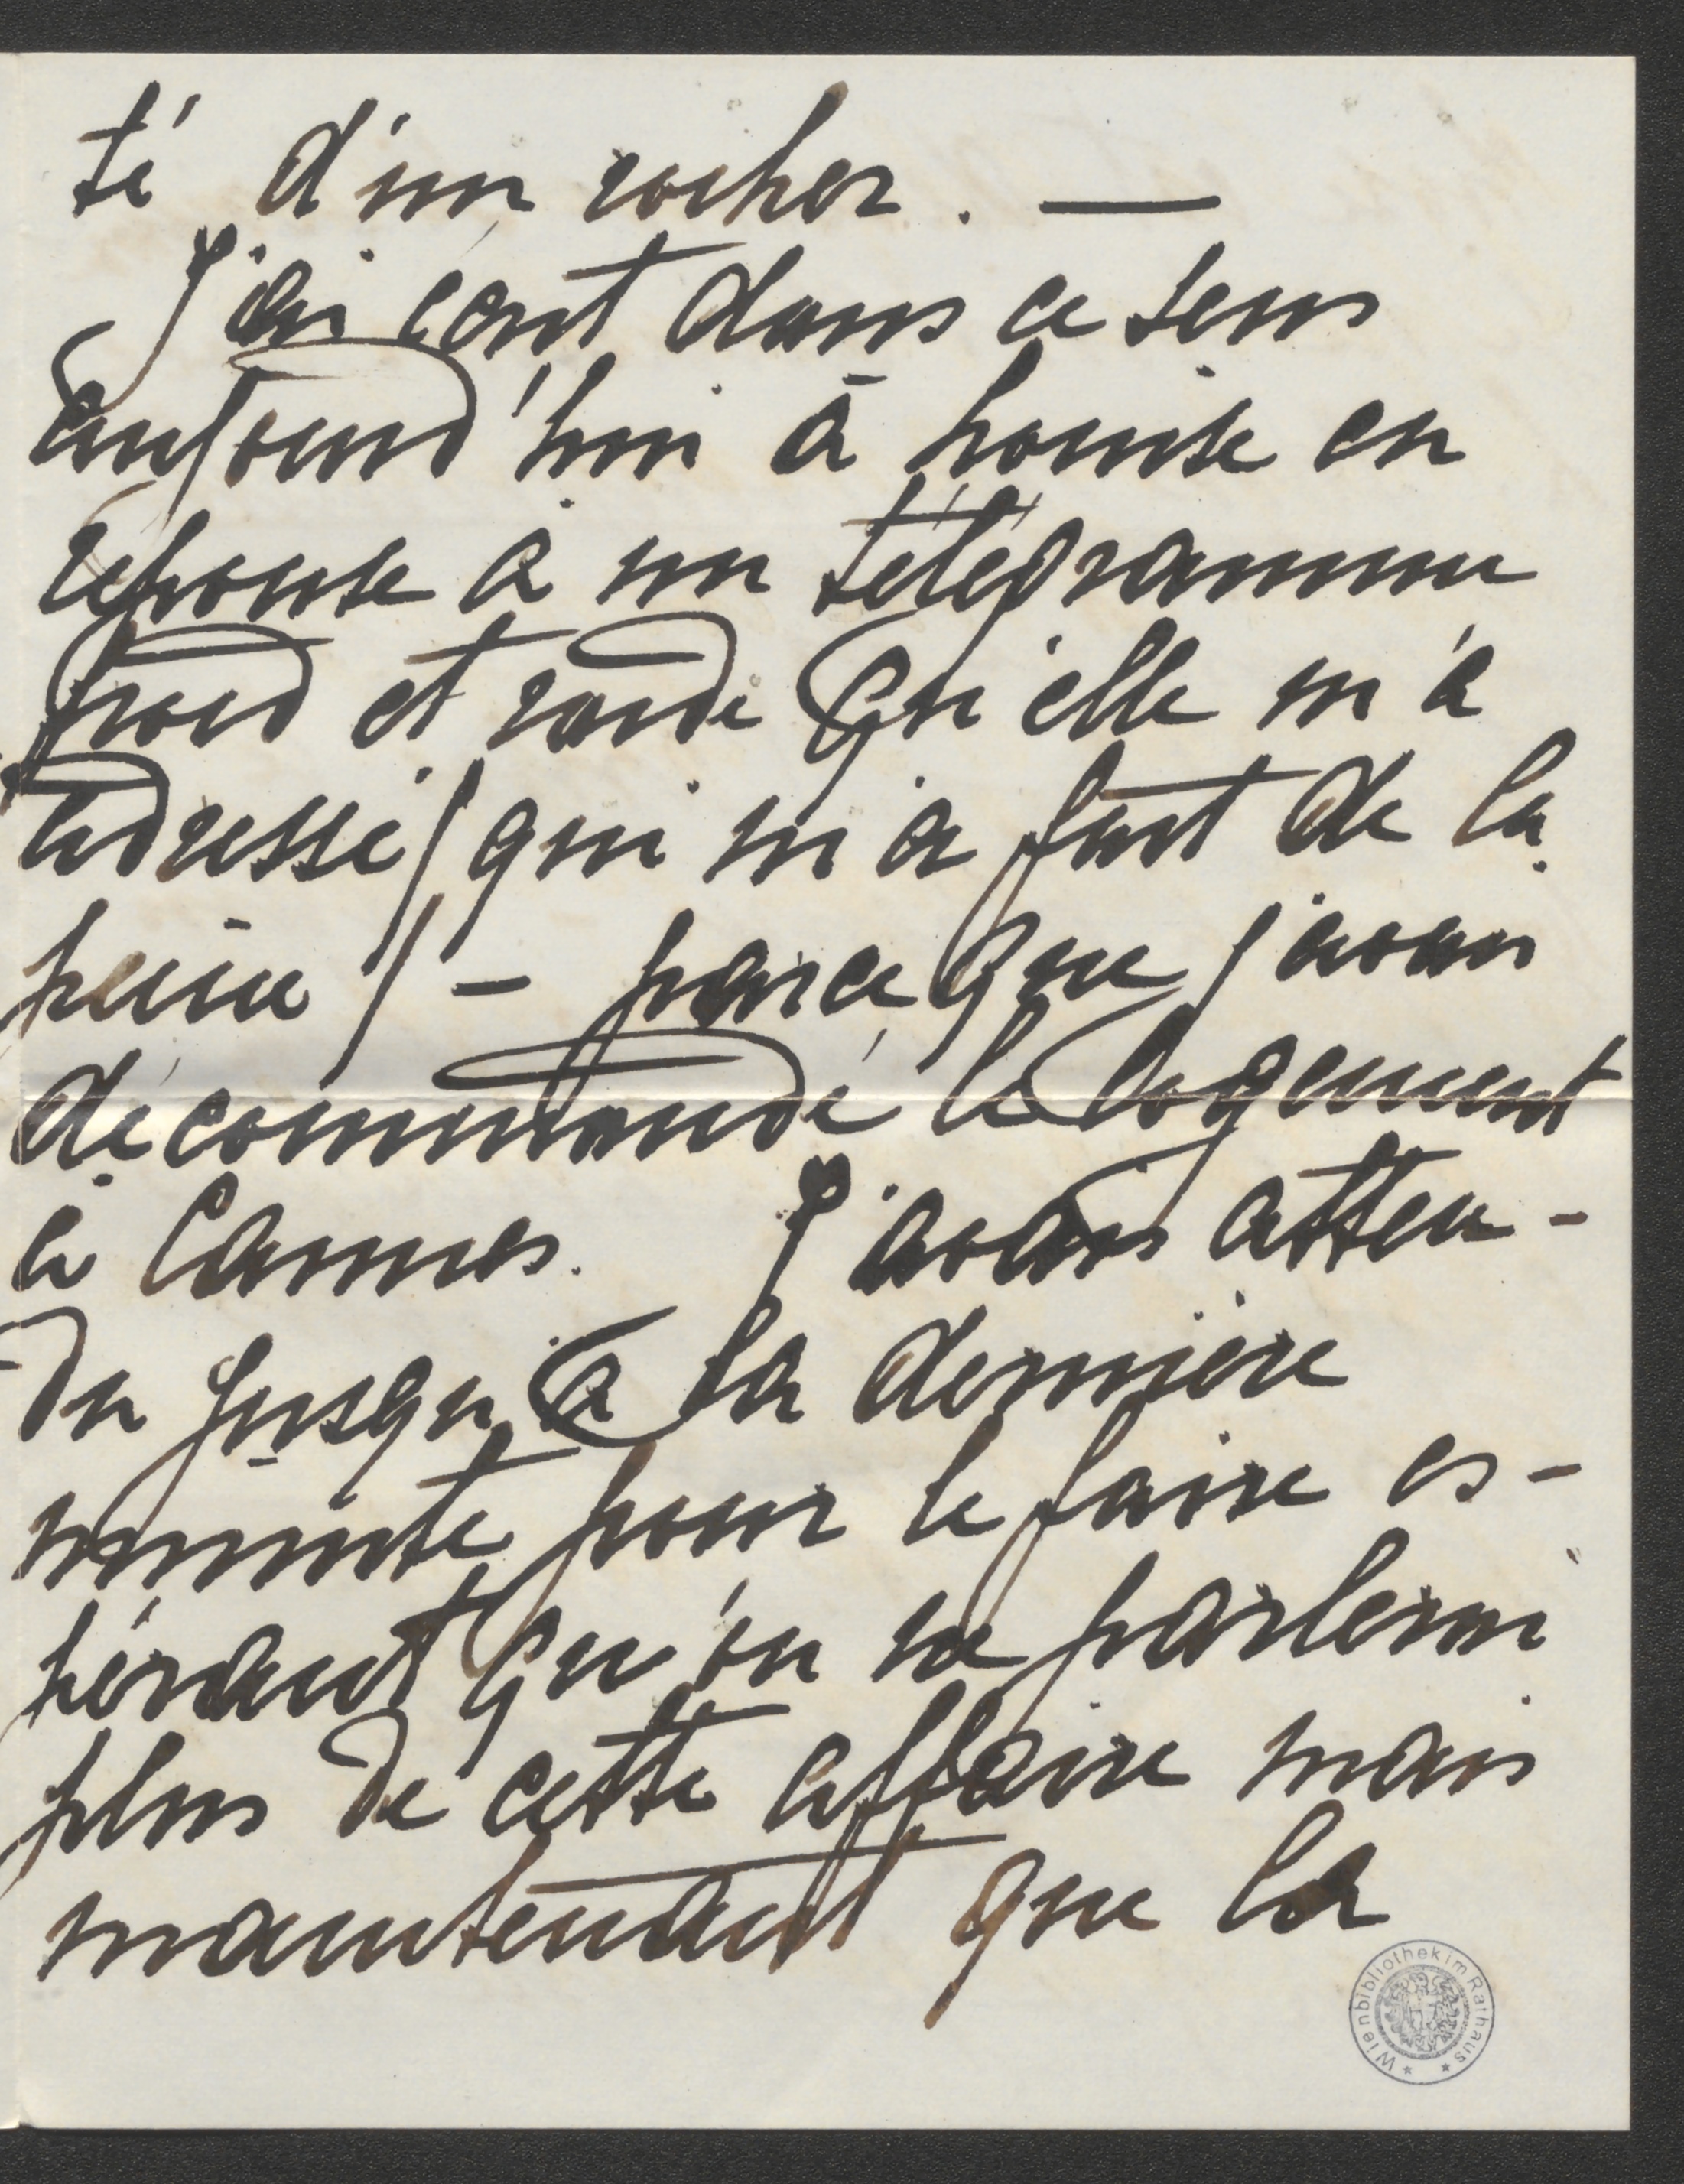 té d'un rocher. —
J'ai écrit dans ce sens
aujourd'hui à Louise en
réponse à un télégramme
froid et raide qu'elle m'a
adressé / qui m'a fait de la
peine / – parce que j'avais
décommandé le logement
à Cannes. J'avais atten-
du jusqu'à la dernière
minute pour le faire es-
pérant qu'on ne parlerai
plus de cette affaire mais
maintenant que la
Wienbibliothek im Rathaus